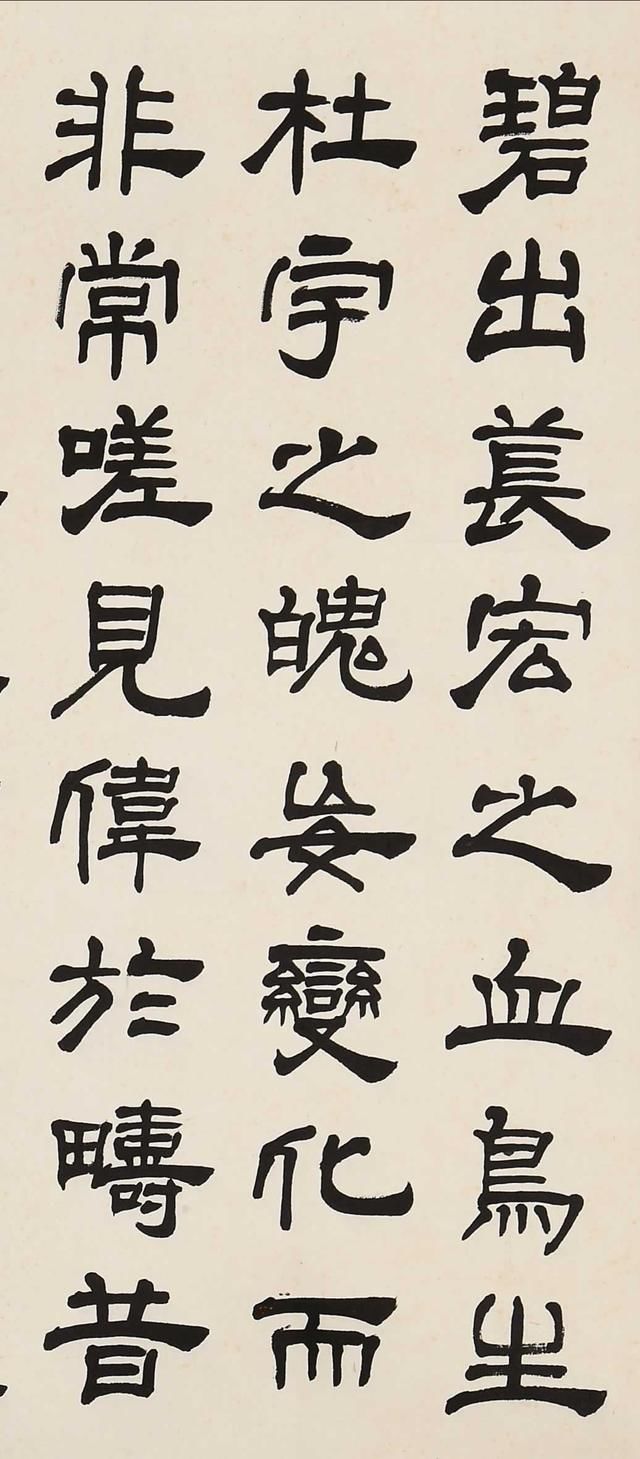 碧出萇宏之血鳥生
杜宇之魄妄變化而
非常嗟見偉於疇昔